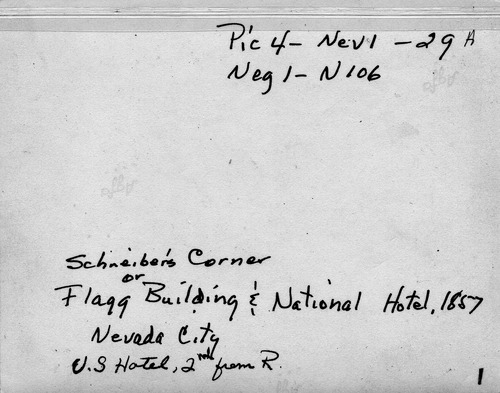 Pic 4 - Nev1 - 29 A
Neg 1 - N106
Schneiber's Corner
or
Flagg Building & National Hotel, 1857
Nevada City
U.S Hotel, 2nd from R.
1